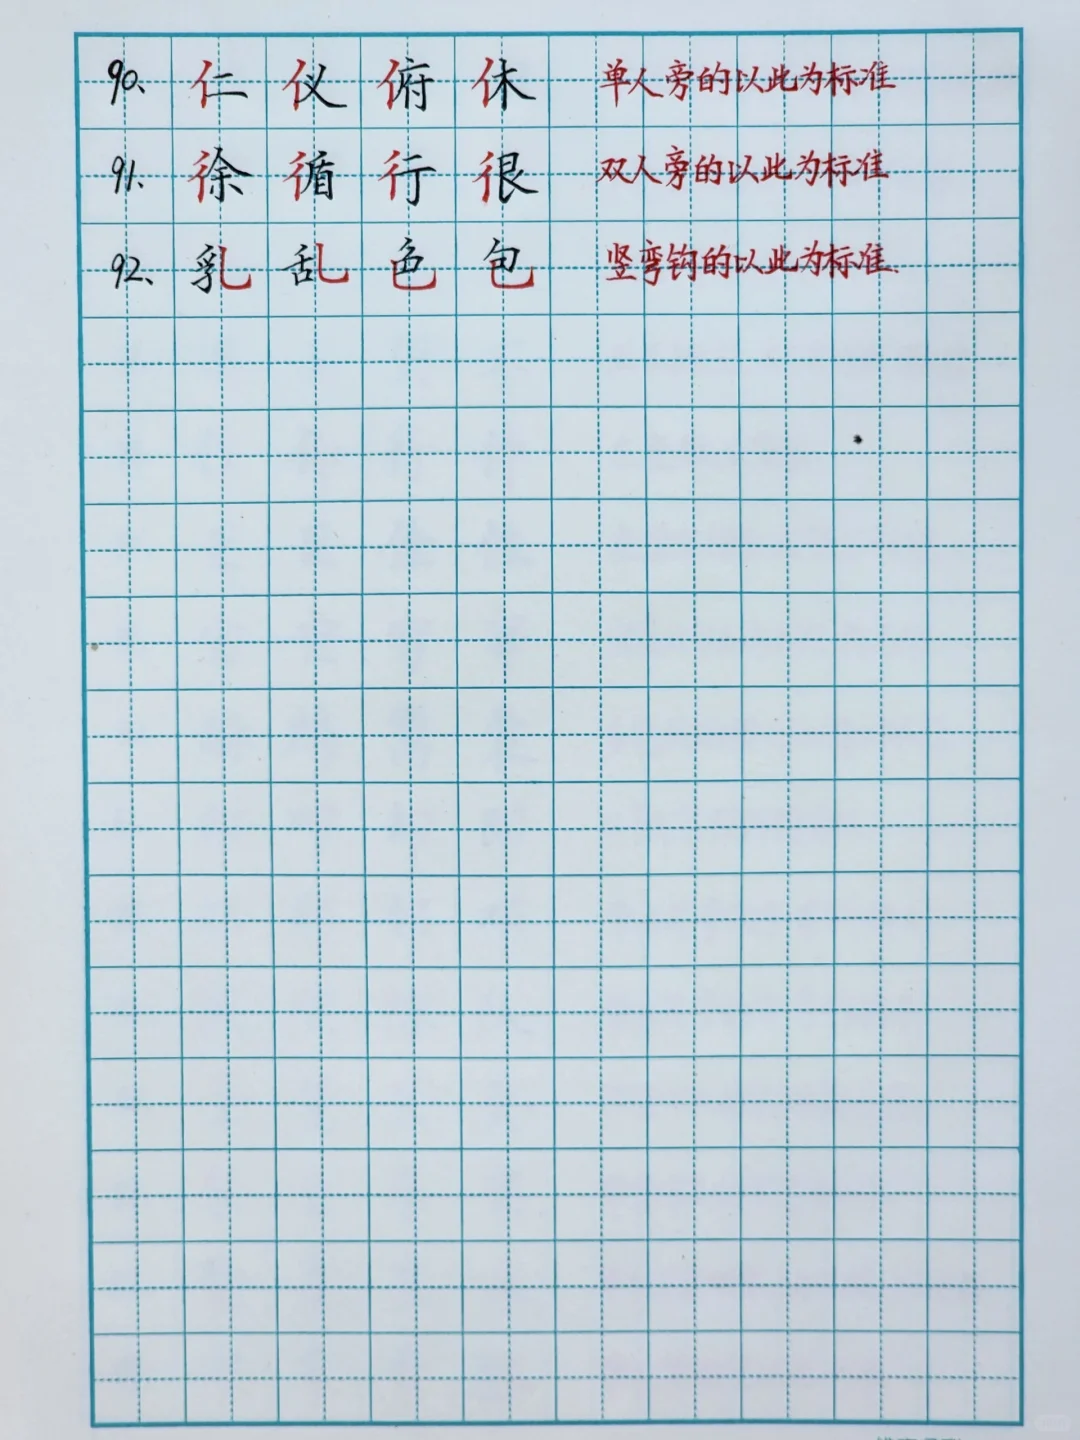 90、 仁 仪 俯 休 单人旁的以此为标准
91、 徐 循 行 很 双人旁的以此为标准
92、 乳 乱 色 包 竖弯钩的以此为标准.